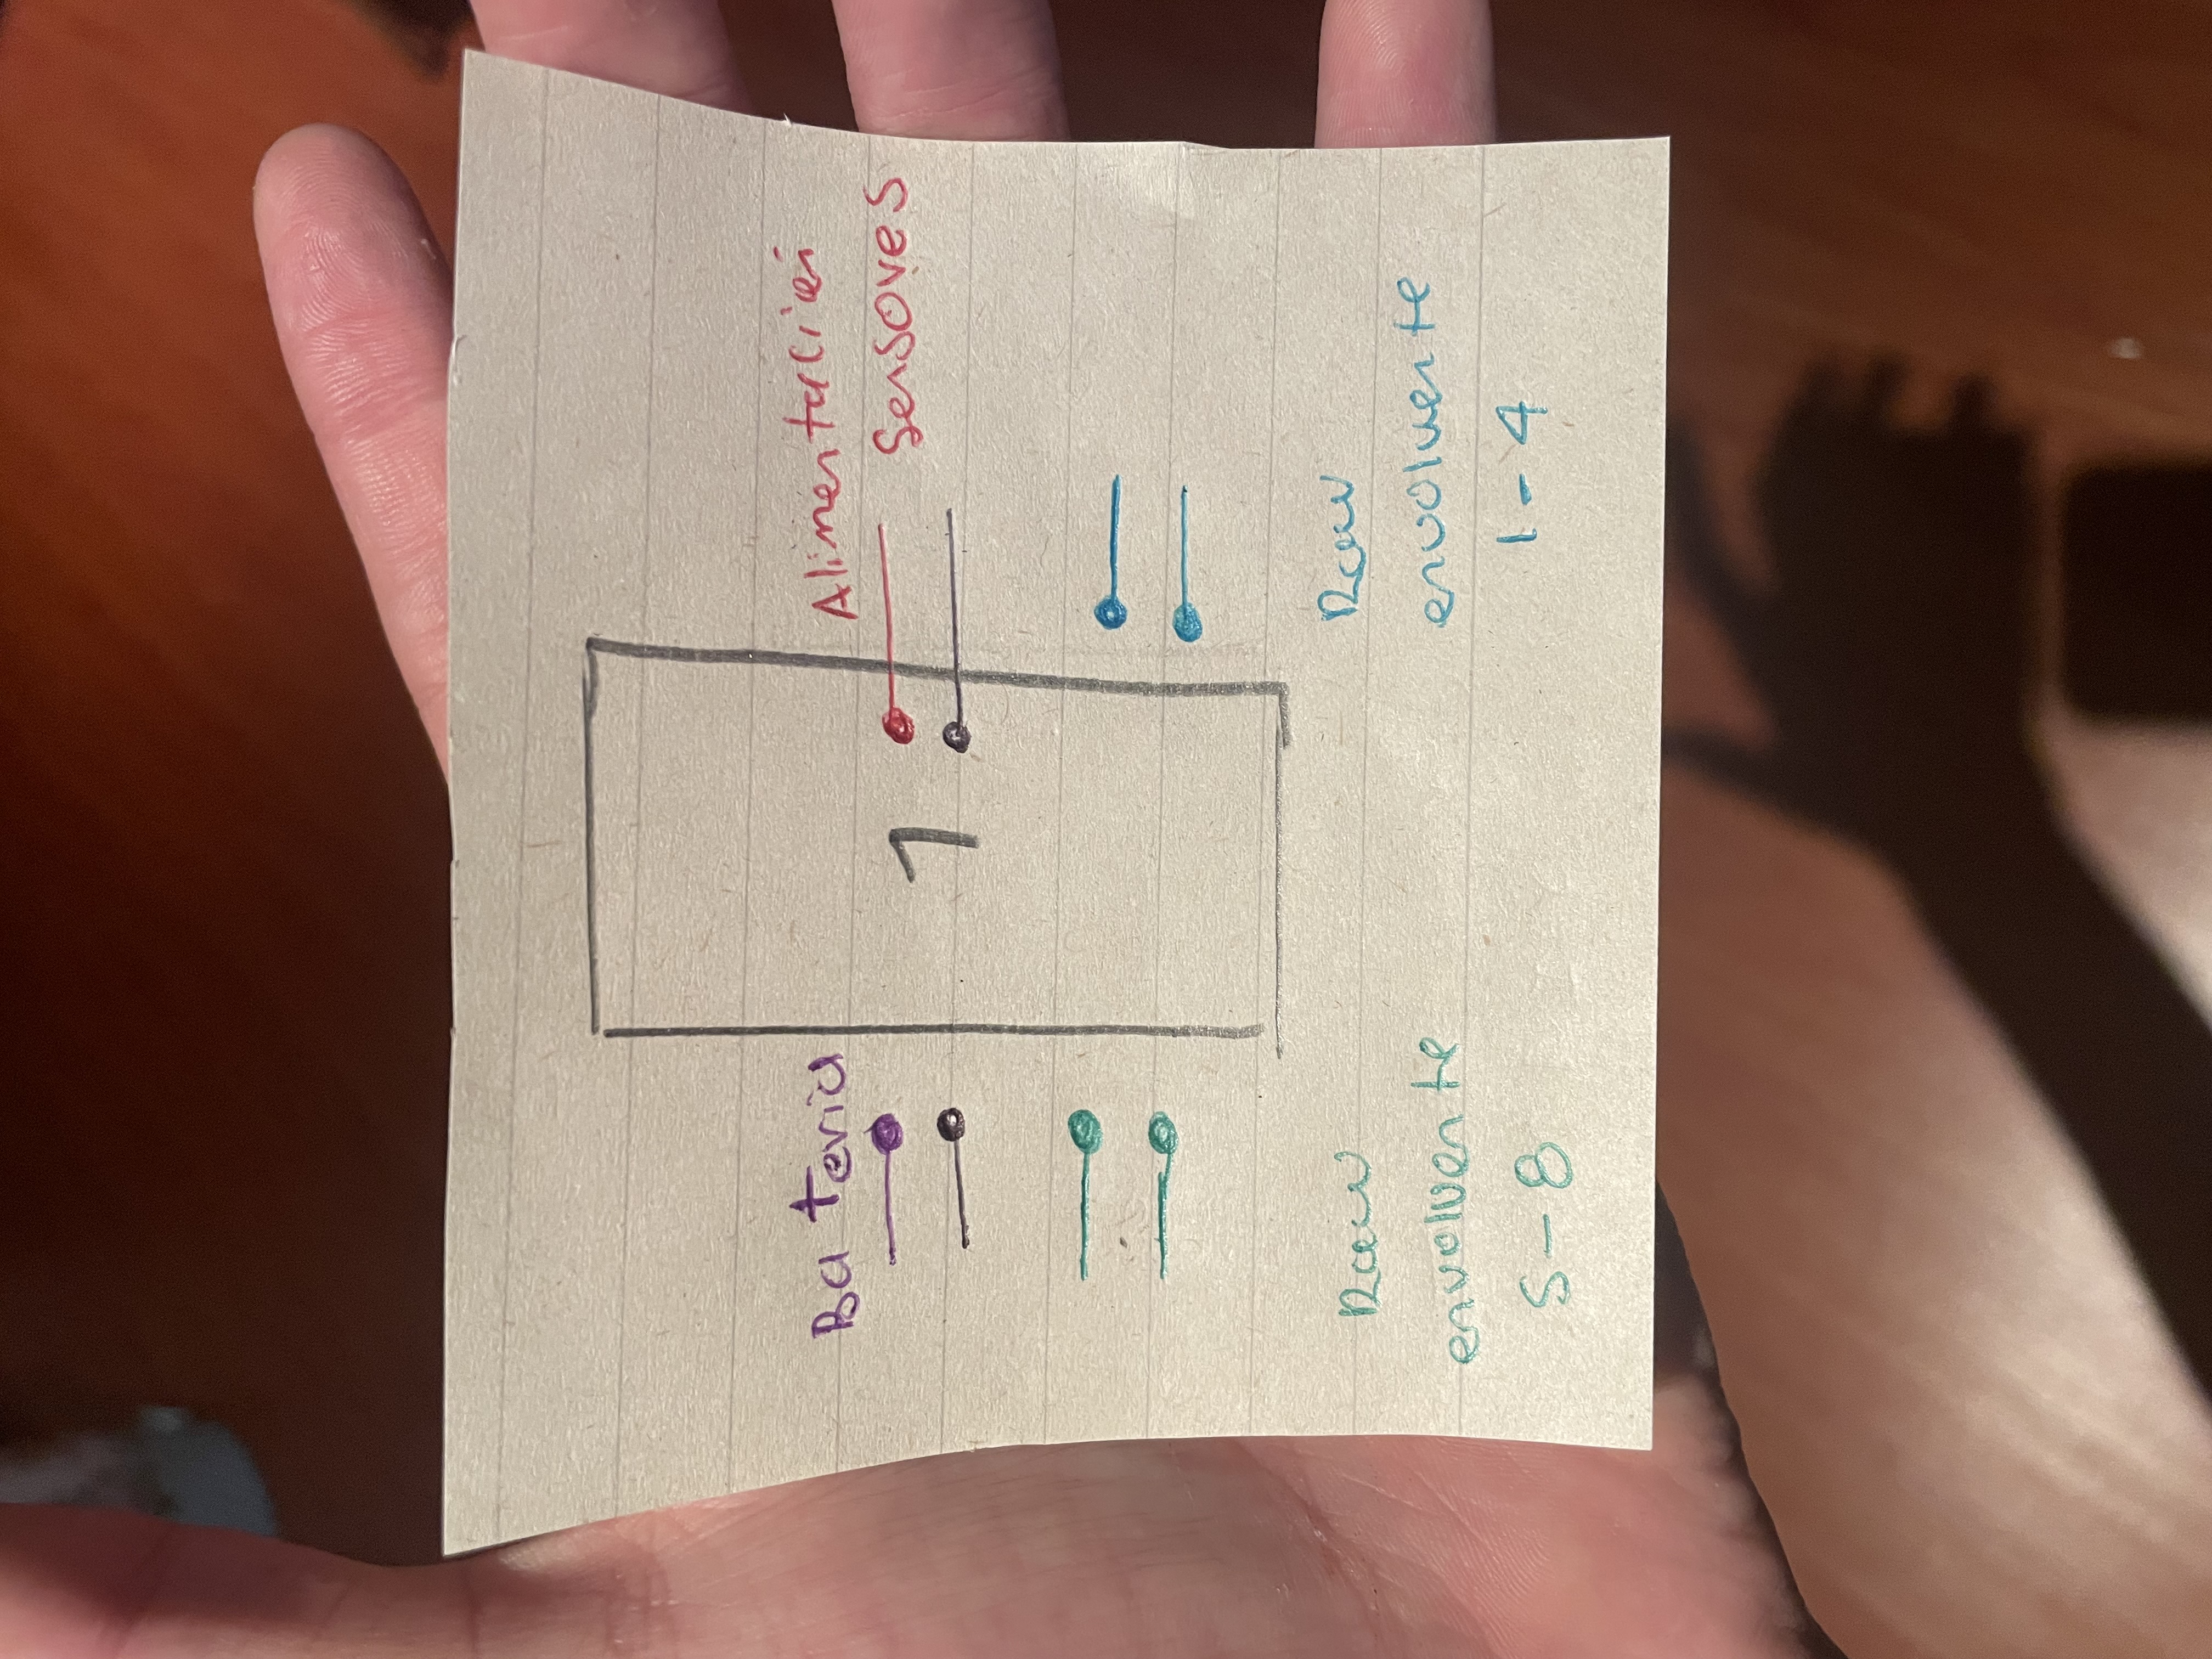 Bateria
Alimentación
Sensores
1
Raw
envolvente
5-8
Raw
envolvente
1-4